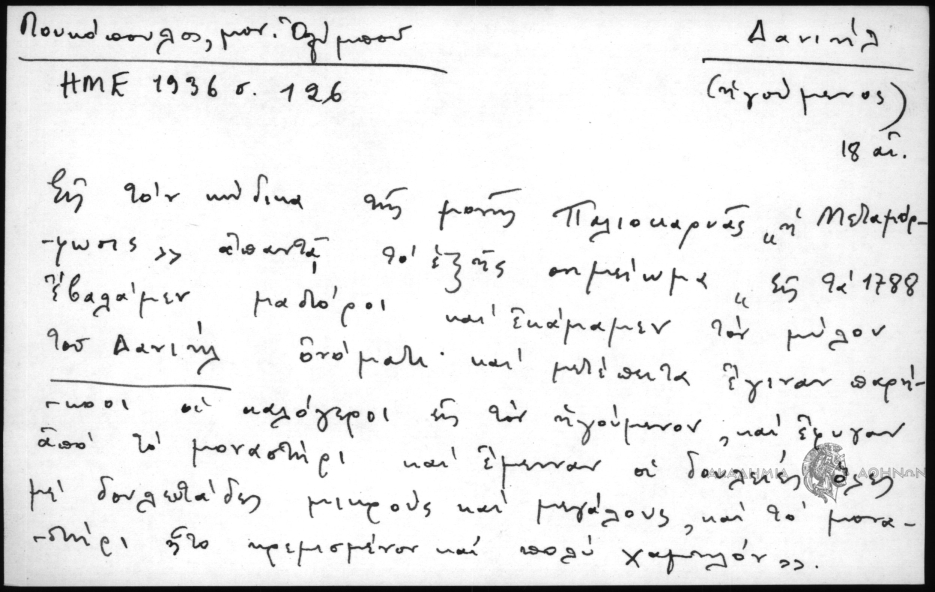 Πουκόπουλος, μον. Ὀλύμπου
Δανιήλ
ΗΜΕ 1936 σ. 126
(ἡγούμενος)
18 αἰ.
Εἰς τὸν κώδικα τῆς μονῆς Παλιοκαρυᾶς „ἡ Μεταμόρ-
-φωσις» ἀπαντᾷ τὸ ἑξῆς σημείωμα „εἰς τὰ 1788
ἐβαλάμεν μαστόροι καὶ ἐκάμαμεν τὸν μύλον
τοῦ Δανιὴλ ὀνόματι· καὶ μετέπειτα ἔγιναν παρή-
-κοοι οἱ καλόγεροι εἰς τὸν ἡγούμενον, καὶ ἔφυγαν
ἀπὸ τὸ μοναστήρι καὶ ἔμειναν οἱ δουλειὲς ὅλες
μὲ δουλευτάδες μικροὺς καὶ μεγάλους, καὶ τὸ μονα-
-στήρι ἦτο κρεμισμένον καὶ πολὺ χαμηλόν».
ΑΚΑΔΗΜΙΑ ΑΘΗΝΩΝ